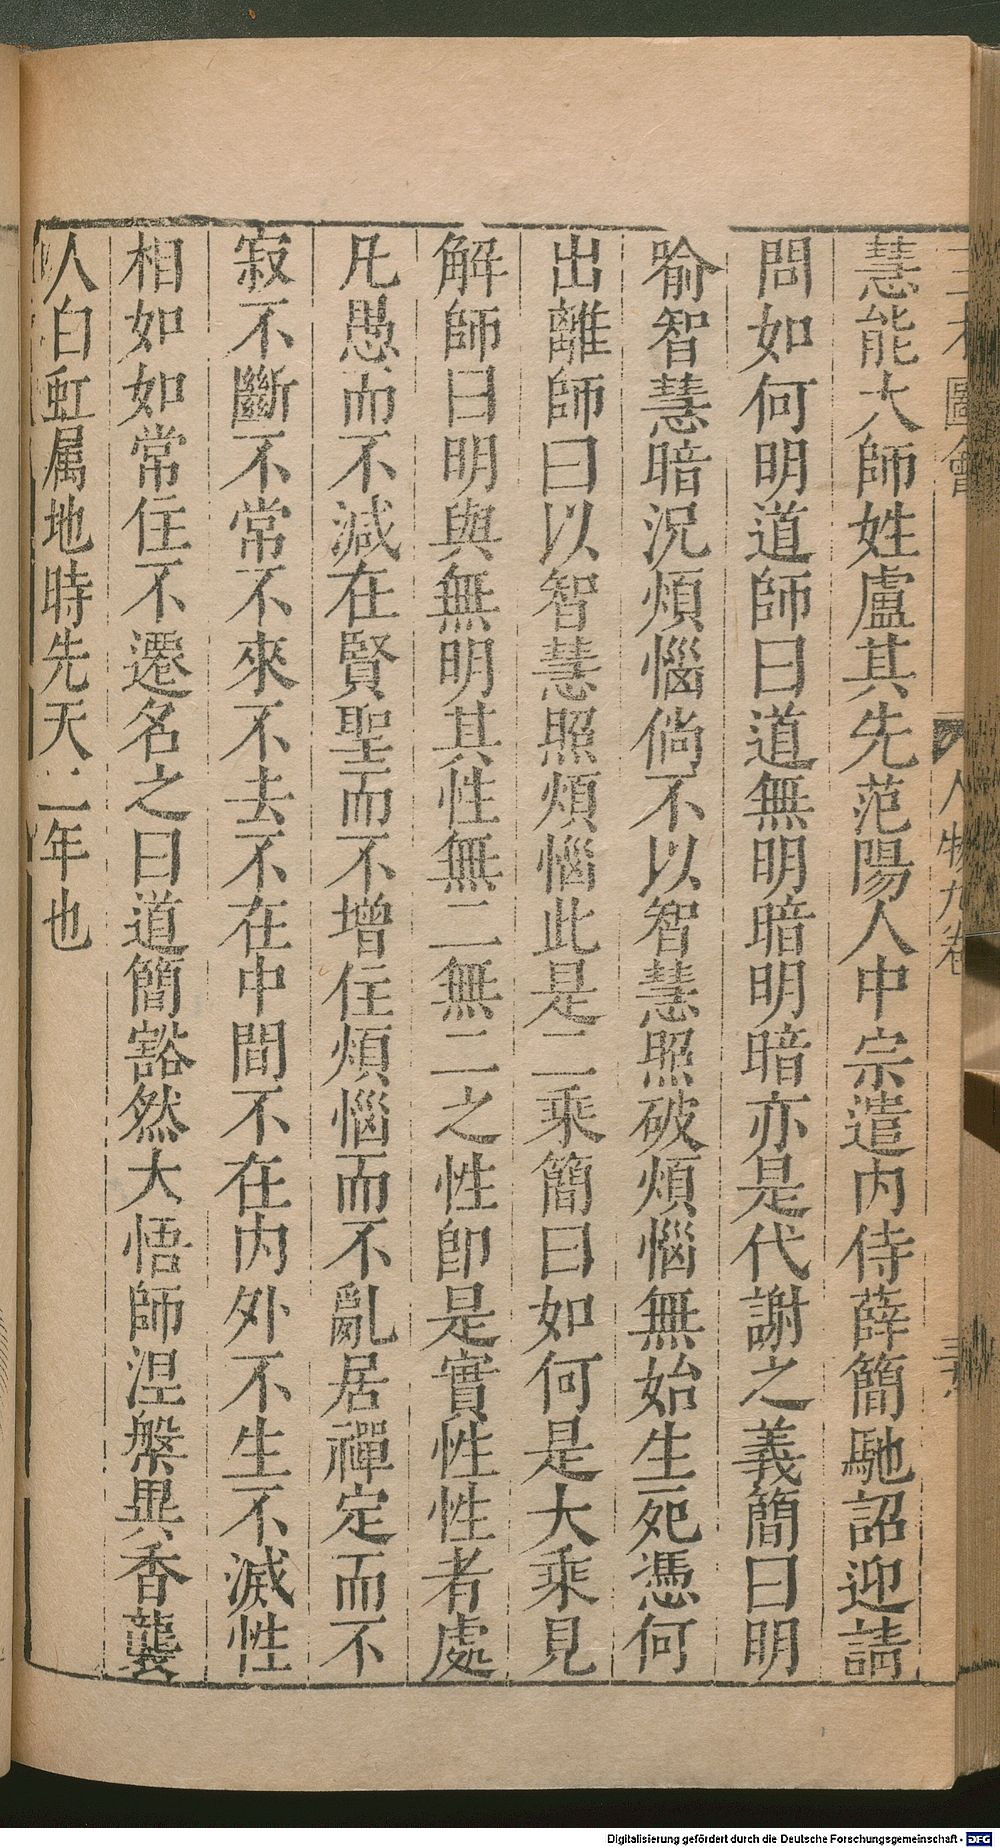 慧能大師姓盧其先范陽人中宗遣内侍薛簡馳詔迎請
問如何明道師曰道無明暗明暗亦是代謝之義簡曰明
喻智慧暗況煩惱倘不以智慧照破煩惱無始生死憑何
出離師曰以智慧照煩惱此是二乘簡曰如何是大乘見
解師曰明與無明其性無二無二之性即是實性性者處
凡愚而不減在賢聖而不增住煩惱而不亂居禪定而不
寂不斷不常不來不去不在中間不在内外不生不滅性
相如如常住不遷名之曰道簡豁然大悟師涅槃異香襲
人白虹属地時先天二年也
圖會
人物九卷
Digitalisierung gefördert durch die Deutsche Forschungsgemeinschaft - DFG